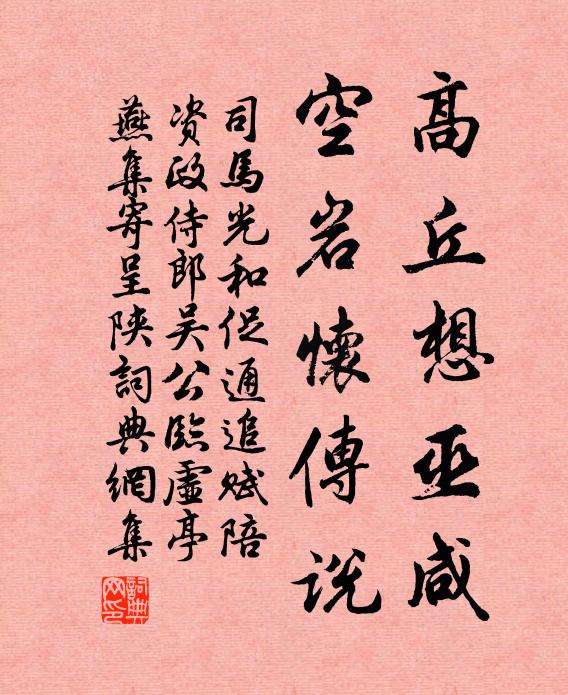 高丘想巫咸
空岩懷傳說
司馬光和促通追賦陪
资政侍郎吴公臨虛亭
燕集寄呈陝詞典網集
詞典
网印